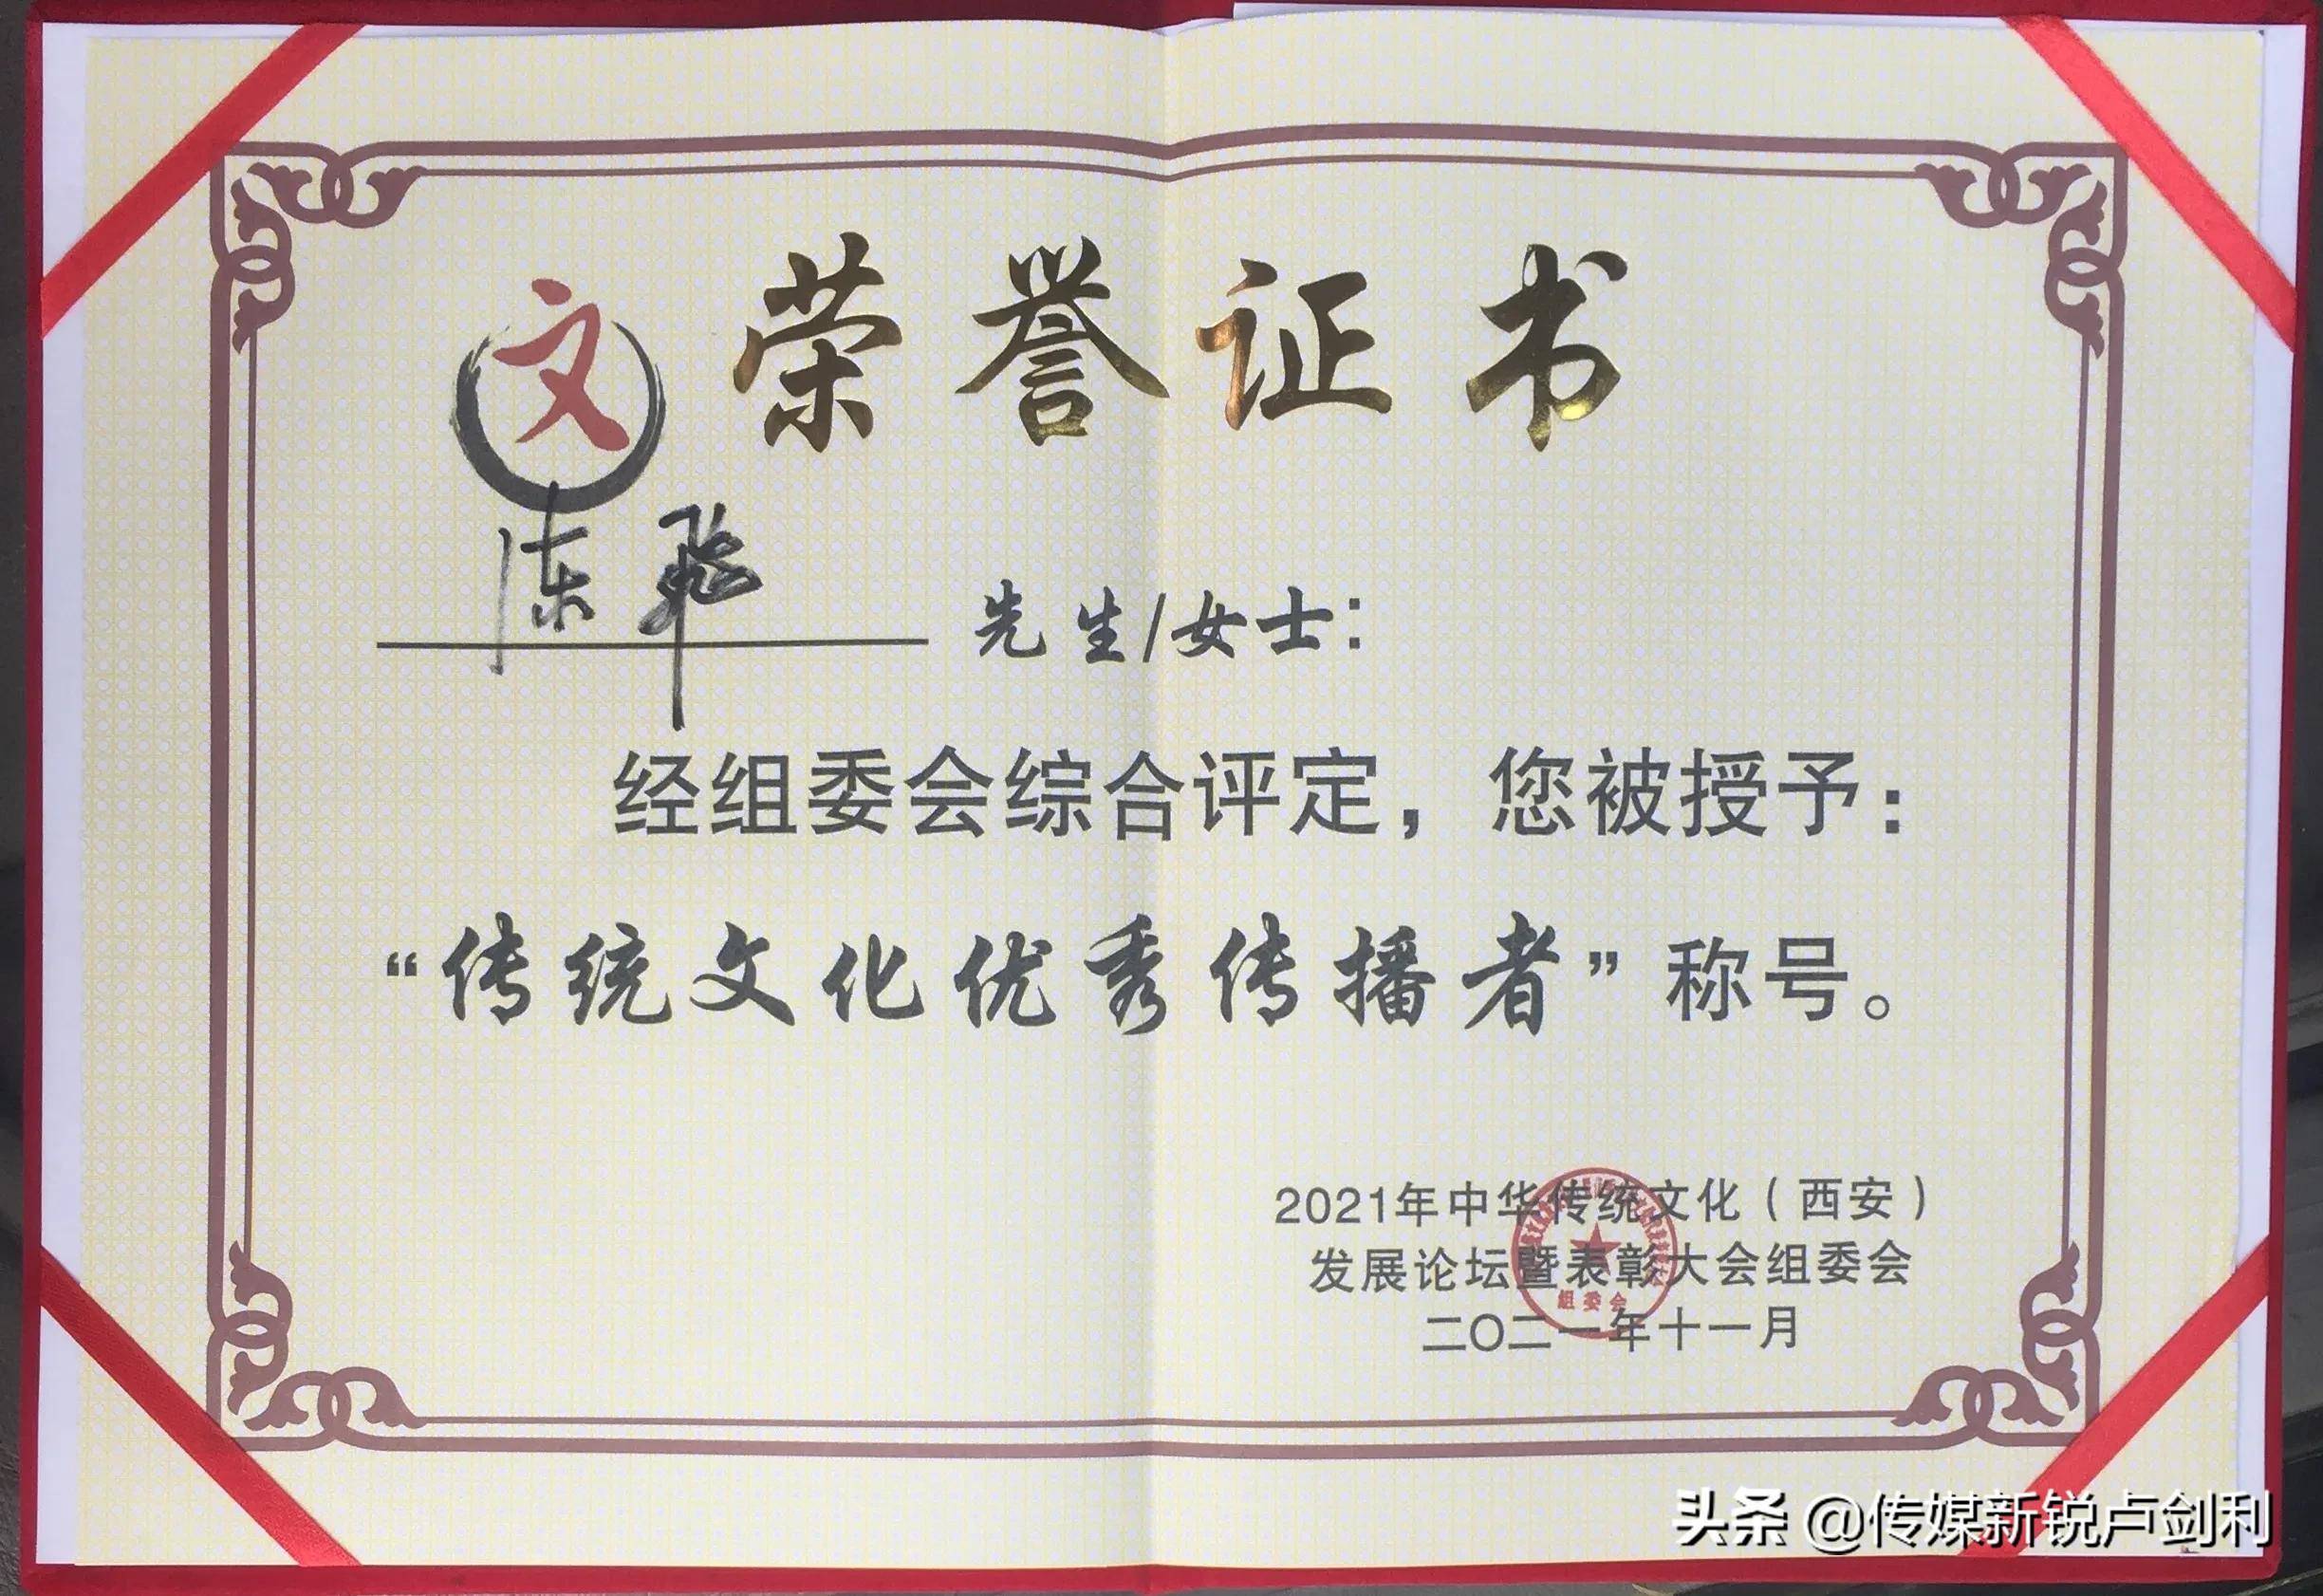 文
荣誉证书
陈飞 先生/女士：
经组委会综合评定，您被授予：
“传统文化优秀传播者”称号。
2021年中华传统文化（西安）
发展论坛暨表彰大会组委会
组委会
二〇二一年十一月
头条 @传媒新锐卢剑利